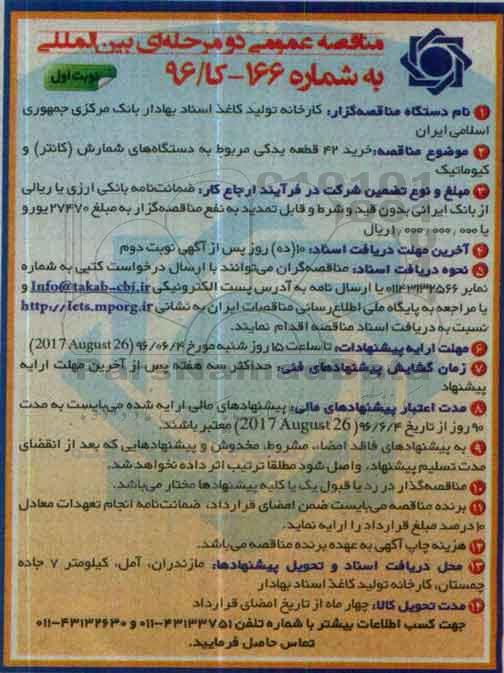 مناقصه عمومی دو مرحله‌ای بین‌المللی
به شماره ۱۶۶-کا/۹۶
نوبت اول
۱ نام دستگاه مناقصه‌گزار: کارخانه تولید کاغذ اسناد بهادار بانک مرکزی جمهوری
اسلامی ایران
۲ موضوع مناقصه: خرید ۴۲ قطعه یدکی مربوط به دستگاه‌های شمارش (کانتر) و
کیوماتیک
۳ مبلغ و نوع تضمین شرکت در فرآیند ارجاع کار: ضمانت‌نامه بانکی ارزی یا ریالی
از بانک ایرانی بدون قید و شرط و قابل تمدید به نفع مناقصه‌گزار به مبلغ ۲۷۴۷۰ یورو و
یا ۱,۰۰۰,۰۰۰,۰۰۰ ریال
۴ آخرین مهلت دریافت اسناد: ۱۰ (ده) روز پس از آگهی نوبت دوم
۵ نحوه دریافت اسناد: مناقصه‌گران می‌توانند با ارسال درخواست کتبی به شماره
نمابر ۰۱۱۴۳۱۳۲۵۶۶ یا ارسال نامه به آدرس پست الکترونیکی Info@takab-cbi.ir و
یا مراجعه به پایگاه ملی اطلاع‌رسانی مناقصات ایران به نشانی http://iets.mporg.ir
نسبت به دریافت اسناد مناقصه اقدام نمایند.
۶ مهلت ارایه پیشنهادات: تا ساعت ۱۵ روز شنبه مورخ ۹۶/۰۶/۴ (2017 August 26)
۷ زمان گشایش پیشنهادهای فنی: حداکثر سه هفته پس از آخرین مهلت ارایه
پیشنهاد
۸ مدت اعتبار پیشنهادهای مالی: پیشنهادهای مالی ارایه شده می‌بایست به مدت
۹۰ روز از تاریخ ۹۶/۶/۴ (2017 August 26) معتبر باشند.
۹ به پیشنهادهای فاقد امضاء، مشروط، مخدوش و پیشنهادهایی که بعد از انقضای
مدت تسلیم پیشنهاد، واصل شود مطلقا ترتیب اثر داده نخواهد شد.
۱۰ مناقصه‌گذار در رد یا قبول یک یا کلیه پیشنهادها مختار می‌باشد.
۱۱ برنده مناقصه می‌بایست ضمن امضای قرارداد، ضمانت‌نامه انجام تعهدات معادل
۱۰ درصد مبلغ قرارداد را ارایه نماید.
۱۲ هزینه چاپ آگهی به عهده برنده مناقصه می‌باشد.
۱۳ محل دریافت اسناد و تحویل پیشنهادها: مازندران، آمل، کیلومتر ۷ جاده
چمستان، کارخانه تولید کاغذ اسناد بهادار
۱۴ مدت تحویل کالا: چهار ماه از تاریخ امضای قرارداد
جهت کسب اطلاعات بیشتر با شماره تلفن ۴۳۱۳۳۷۵۱-۰۱۱ و ۴۳۱۳۲۶۳۰-۰۱۱
تماس حاصل فرمایید.